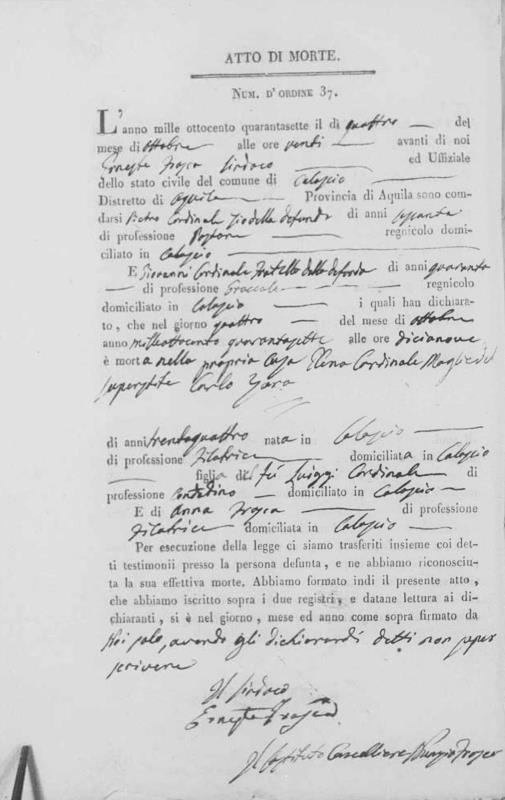 ATTO DI MORTE.
NUM. D'ORDINE 37.
L'anno mille ottocento quarantasette il dì quattro del
mese di ottobre alle ore venti avanti di noi
Erneste Frasca Sindaco ed Uffiziale
dello stato civile del comune di Calascio
Distretto di Aquila Provincia di Aquila sono com-
darsi Pietro Cardinale Zio della defonda di anni
di professione Pastore regnicolo domi-
ciliato in Calascio
E Giovanni Cardinale Fratello della defonda di anni quaranta
di professione regnicolo
domiciliato in Calascio i quali han dichiara-
to, che nel giorno quattro del mese di ottobre
anno milleottocento quarantasette alle ore diciannove
è morta nella propria casa Elena Cardinale Moglie del
superstite Carlo
di anni trentaquattro nata in Calascio
di professione Filatrice domiciliata in Calascio
figlia di fù Luiggi Cardinale di
professione contadino domiciliato in Calascio
E di Anna Frasca di professione
Filatrice domiciliata in Calascio
Per esecuzione della legge ci siamo trasferiti insieme coi det-
ti testimonii presso la persona defunta, e ne abbiamo riconosciu-
ta la sua effettiva morte. Abbiamo formato indi il presente atto,
che abbiamo iscritto sopra i due registri, e datane lettura ai di-
chiaranti, si è nel giorno, mese ed anno come sopra firmato da
Noi solo, avendo gli dichiaranti detti non saper
scrivere
Il Sindaco
Erneste Frasca
Il Sostituto Cancelliere Frasca